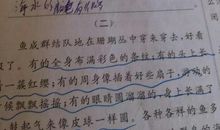 海水的
（二）
鱼成群结队地在珊瑚丛中穿来穿去，好看
极了。有的全身布满彩色的条纹；有的头上长
着一簇红缨；有的周身像插着好些扇子，游动的
时候飘飘摇摇；有的眼睛圆溜溜的，身上长满了
刺，鼓起气来像皮球一样圆。各种各样的鱼多